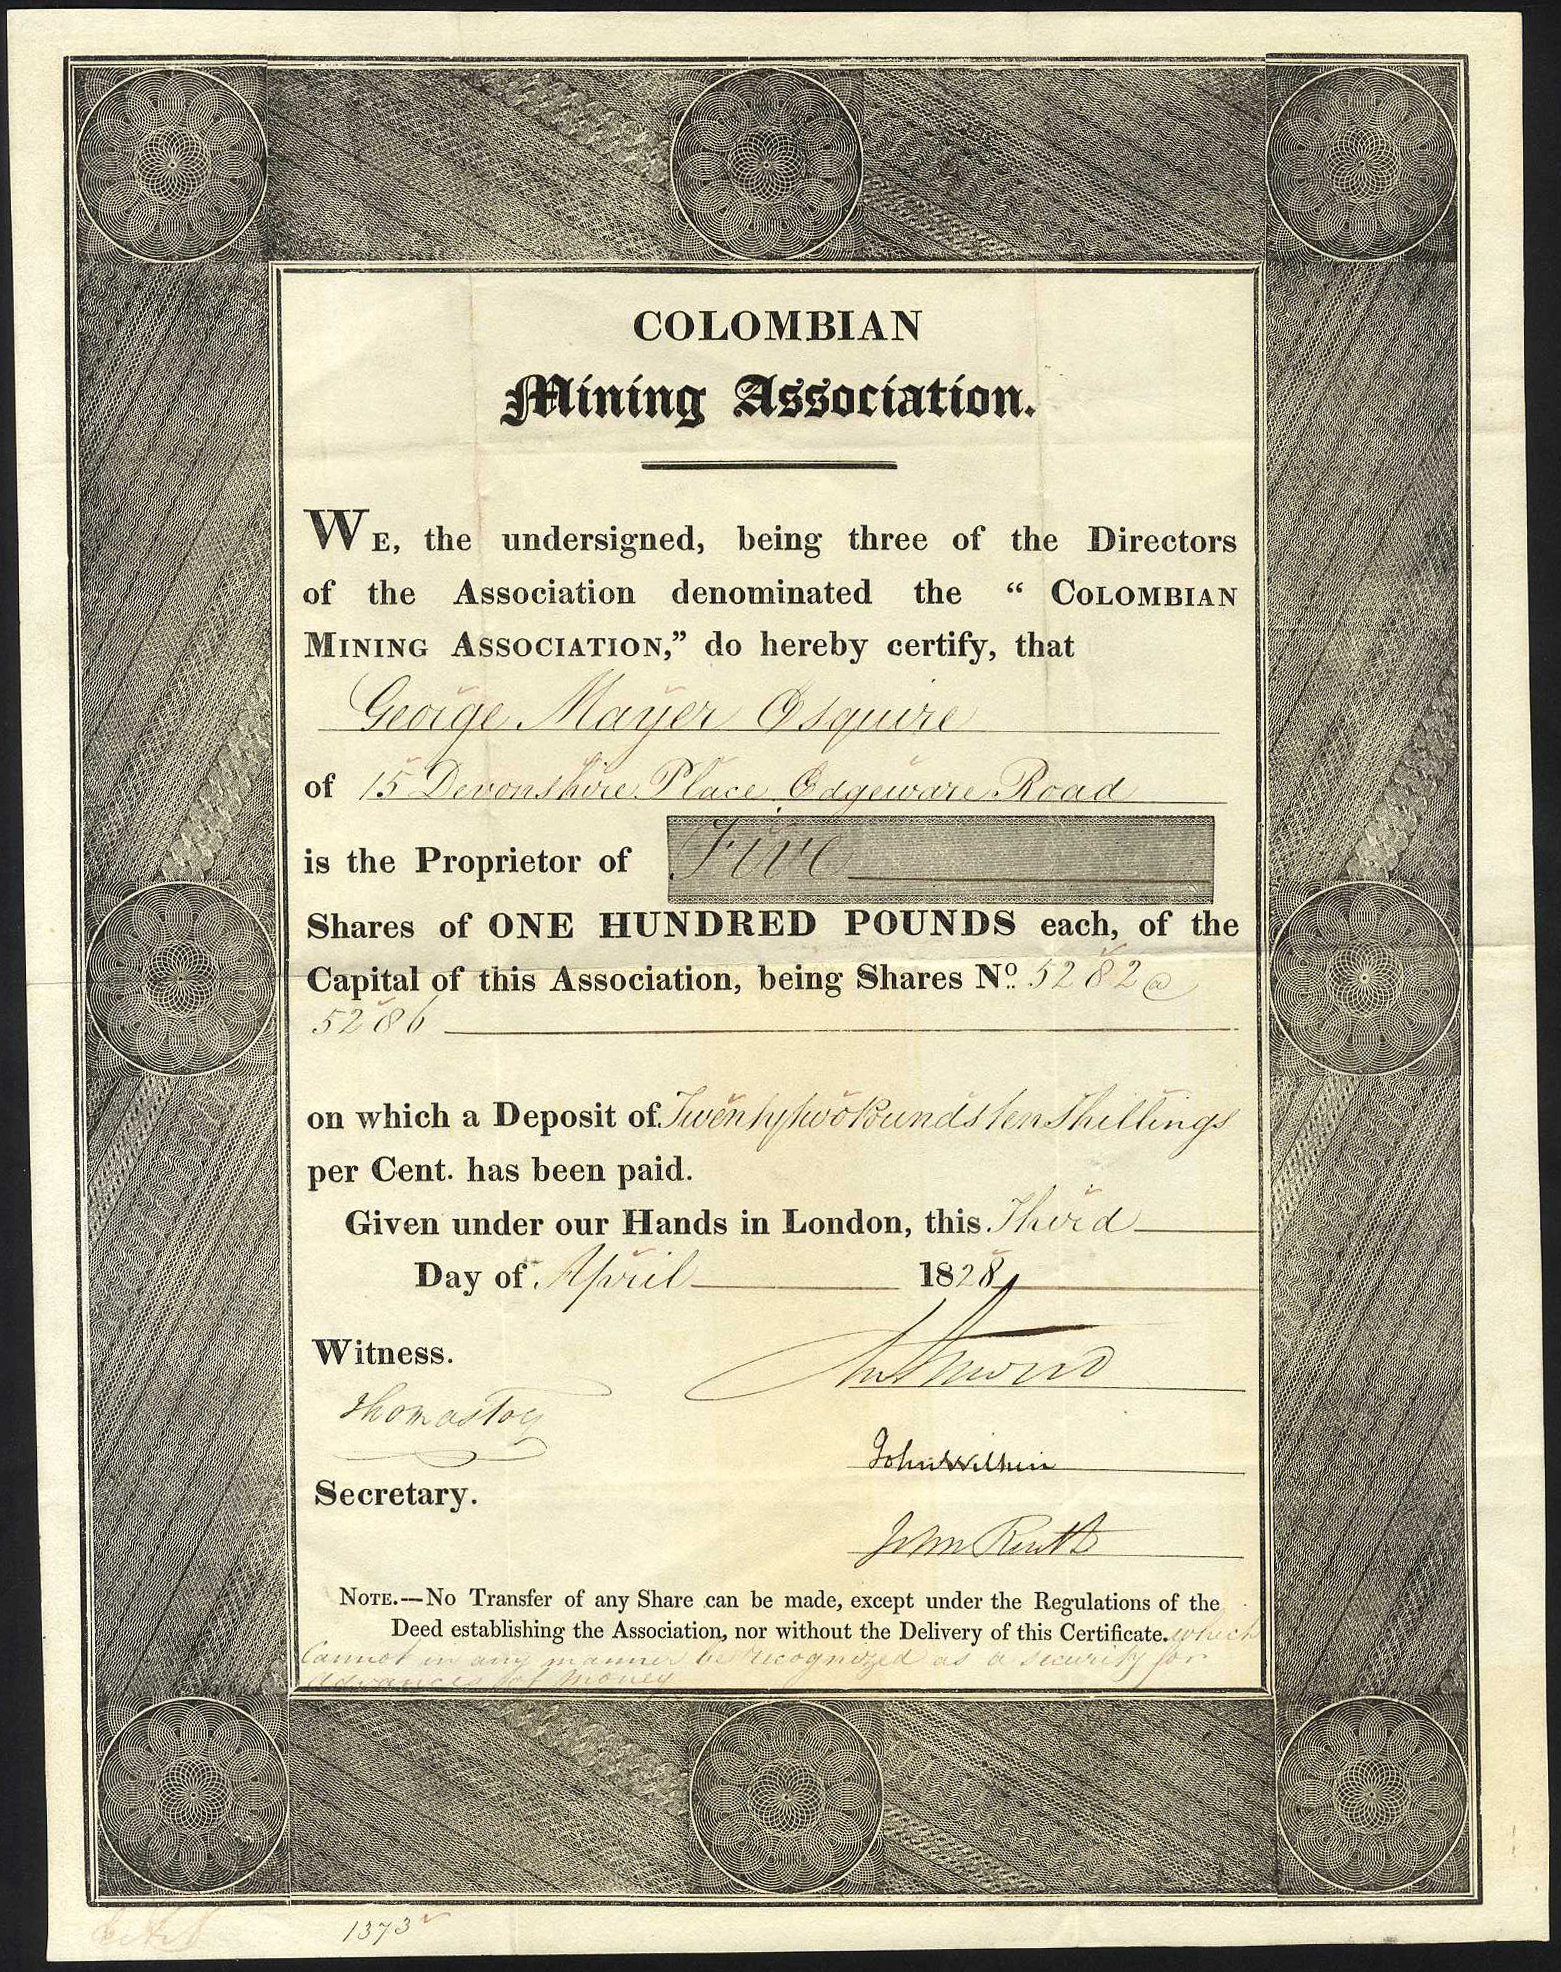 COLOMBIAN
Mining Association.
WE, the undersigned, being three of the Directors
of the Association denominated the “ COLOMBIAN
MINING ASSOCIATION,” do hereby certify, that
George Mayer Esquire
of 15 Devonshire Place Edgeware Road
is the Proprietor of Five
Shares of ONE HUNDRED POUNDS each, of the
Capital of this Association, being Shares No. 5282 @
5286
on which a Deposit of Twenty two Pounds ten Shillings
per Cent. has been paid.
Given under our Hands in London, this Third
Day of April 1828
Witness.
Thomas Toy
John Wilkin
Secretary.
John
NOTE.—No Transfer of any Share can be made, except under the Regulations of the
Deed establishing the Association, nor without the Delivery of this Certificate. which
Cannot in any manner be recognized as a security for
advances of money
1373